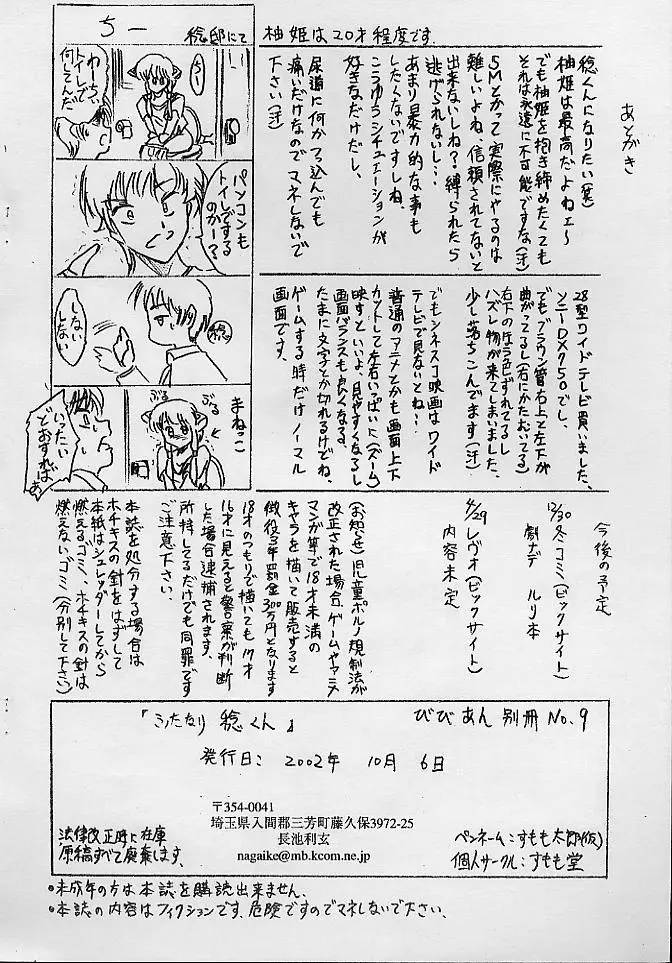 あとがき
稔くんになりたい(笑)
柚姫は最高だよねェ〜
でも柚姫を抱き締めたくても
それは永遠に不可能ですな(汗)
SMとかって実際にやるのは
難しいよね、信頼されてないと
出来ないしね?縛られたら
逃げられないし…
あまり暴力的な事も
したくないですしね、
こうゆうシチュエーションが
好きなだけだし、
尿道に何かつっ込んでも
痛いだけなのでマネしないで
下さい(汗)
柚姫は20才程度です.
28型ワイドテレビ買いました、
ソニーDX750でし、
でもブラウン管右上と左下が
曲がってるし(右にかたむいてる)
右下の方ラ色ずれてるし
ハズレ物が来てしまいました、
少し落ちこんでます(汗)
でもシネスコ映画はワイド
テレビで見ないとね…
普通のアニメとかも画面上下
カットして左右いっぱいに(ズーム)
映すといいよ、見やすくなるし
画面バランスも良くなる、
たまに文字とか切れるけどね、
ゲームする時だけノーマル
画面です、
今後の予定
12/30冬コミ(ビックサイト)
劇ナデ ルリ本
4/29レヴォ(ビックサイト)
内容未定
(お知らせ)児童ポルノ規制法が
改正された場合、ゲームやアニメ
マンガ等で18才未満の
キャラを描いて販売すると
懲役3年罰金300万円となります
18才のつもりで描いても17才
16才に見えると警察が判断
した場合逮捕されます、
所持してるだけでも同罪です
ご注意下さい、
本誌を処分する場合は
ホチキスの針をはずして
本紙はシュレッダーしてから
燃えるゴミ、ホチキスの針は
燃えないゴミ(分別して下さい)
稔邸にて
ちー
ちー
わーちぃ
トイレで
何してんだ
パソコンも
トイレするの
のかー?
稔
しない
しない
まねっこ
ぶる
ぶる
いったい
どおすれば
あ
『ふたなり 稔くん』
びびあん 別冊 No.9
発行日: 2002年 10月 6日
〒354-0041
埼玉県入間郡三芳町藤久保3972-25
長池利玄
nagaike@mb.kcom.ne.jp
法律改正時に在庫
原稿すべて廃棄します.
ペンネーム:すもも太郎(仮)
個人サークル:すもも堂
・未成年の方は本誌を購読出来ません.
・本誌の内容はフィクションです.危険ですのでマネしないで下さい.